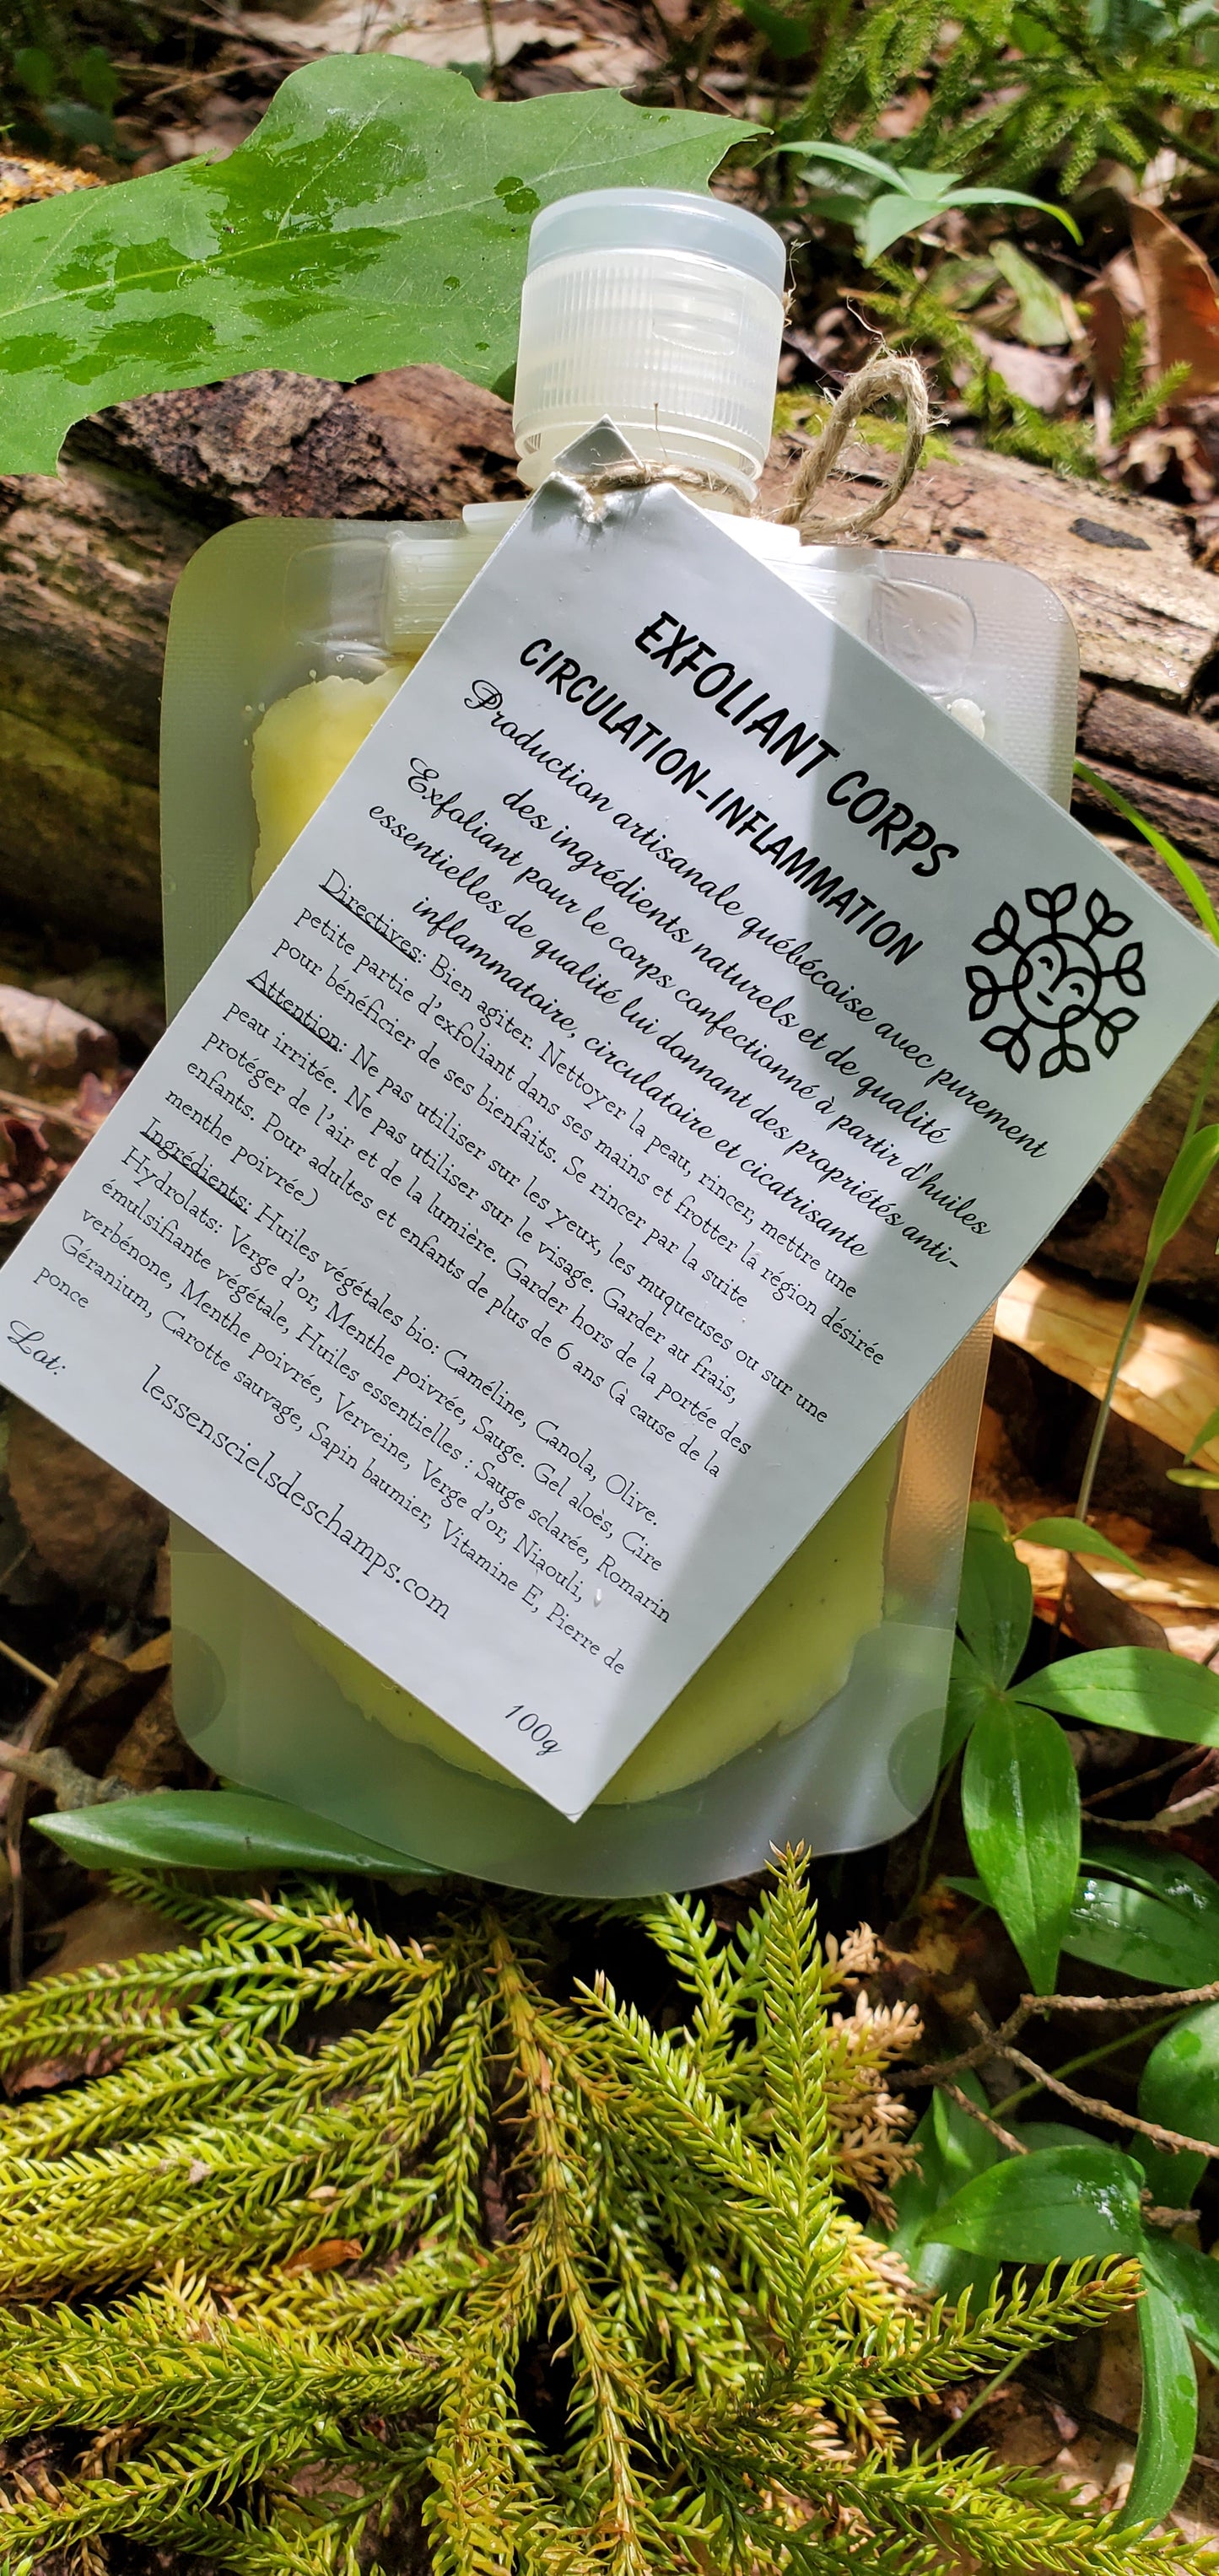 EXFOLIANT CORPS
CIRCULATION-INFLAMMATION
Production artisanale québécoise avec purement
des ingrédients naturels et de qualité
Exfoliant pour le corps confectionné à partir d'huiles
essentielles de qualité lui donnant des propriétés anti-
inflammatoire, circulatoire et cicatrisante
Directives: Bien agiter. Nettoyer la peau, rincer, mettre une
petite partie d'exfoliant dans ses mains et frotter la région désirée
pour bénéficier de ses bienfaits. Se rincer par la suite
Attention: Ne pas utiliser sur les yeux, les muqueuses ou sur une
peau irritée. Ne pas utiliser sur le visage. Garder au frais,
protéger de l'air et de la lumière. Garder hors de la portée des
enfants. Pour adultes et enfants de plus de 6 ans (à cause de la
menthe poivrée)
Ingrédients: Huiles végétales bio: Caméline, Canola, Olive.
Hydrolats: Verge d'or, Menthe poivrée, Sauge. Gel aloès, Cire
émulsifiante végétale, Huiles essentielles : Sauge sclarée, Romarin
verbénone, Menthe poivrée, Verveine, Verge d'or, Niaouli,
Géranium, Carotte sauvage, Sapin baumier, Vitamine E, Pierre de
ponce
Lot:
lessenscielsdeschamps.com
100g